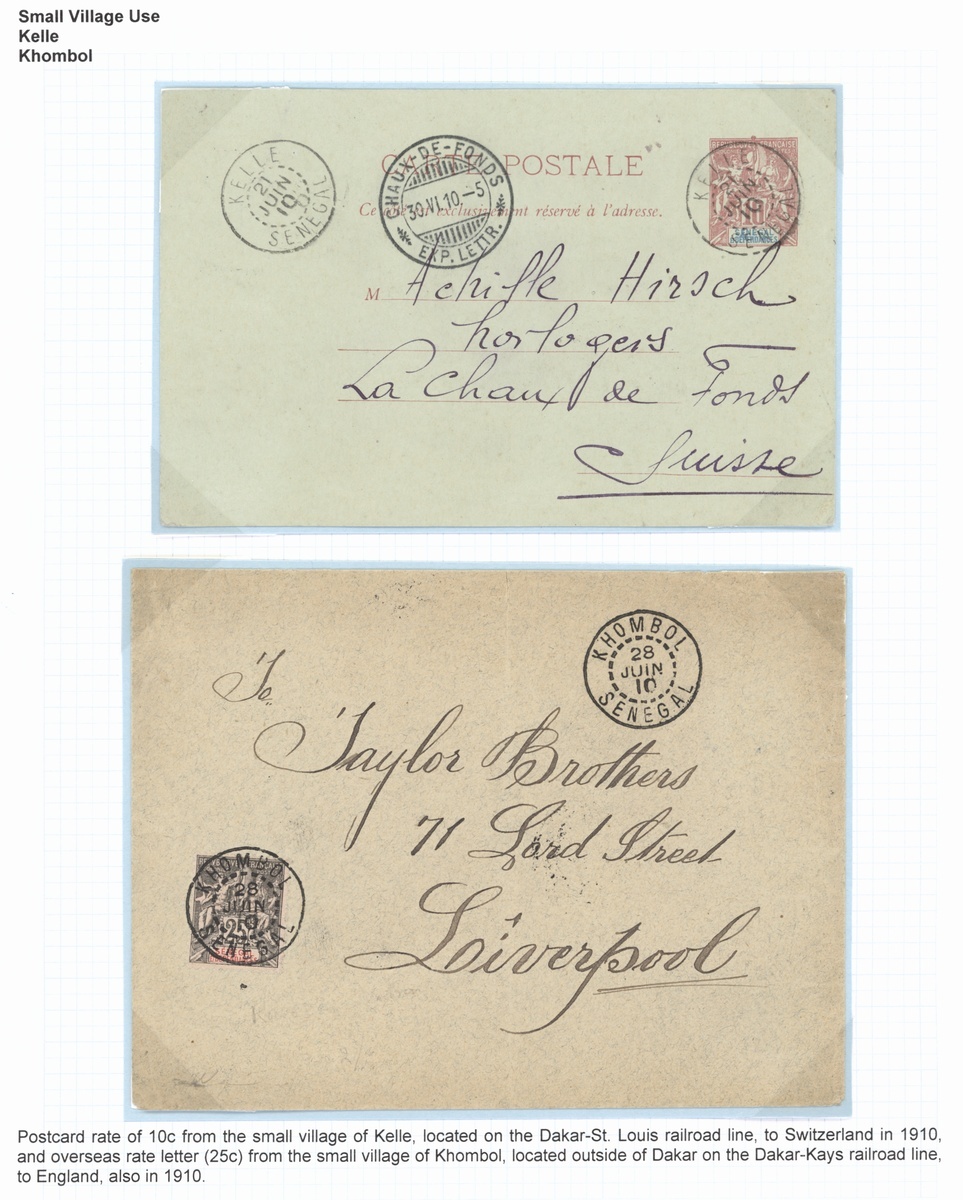 Small Village Use
Kelle
Khombol
KELLE
21
JUIN
10
SENEGAL
CHAUX-DE-FONDS
30.VI.10.-5
EXP. LETTR.
CARTE POSTALE
Ce côté est exclusivement réservé à l'adresse.
KELLE
21
JUIN
10
SENEGAL
M Achille Hirsch
horlogers
La Chaux de Fonds
Suisse
KHOMBOL
28
JUIN
10
SENEGAL
To.
Taylor Brothers
71 Lord Street
Liverpool
KHOMBOL
28
JUIN
10
25
SENEGAL
Postcard rate of 10c from the small village of Kelle, located on the Dakar-St. Louis railroad line, to Switzerland in 1910,
and overseas rate letter (25c) from the small village of Khombol, located outside of Dakar on the Dakar-Kays railroad line,
to England, also in 1910.